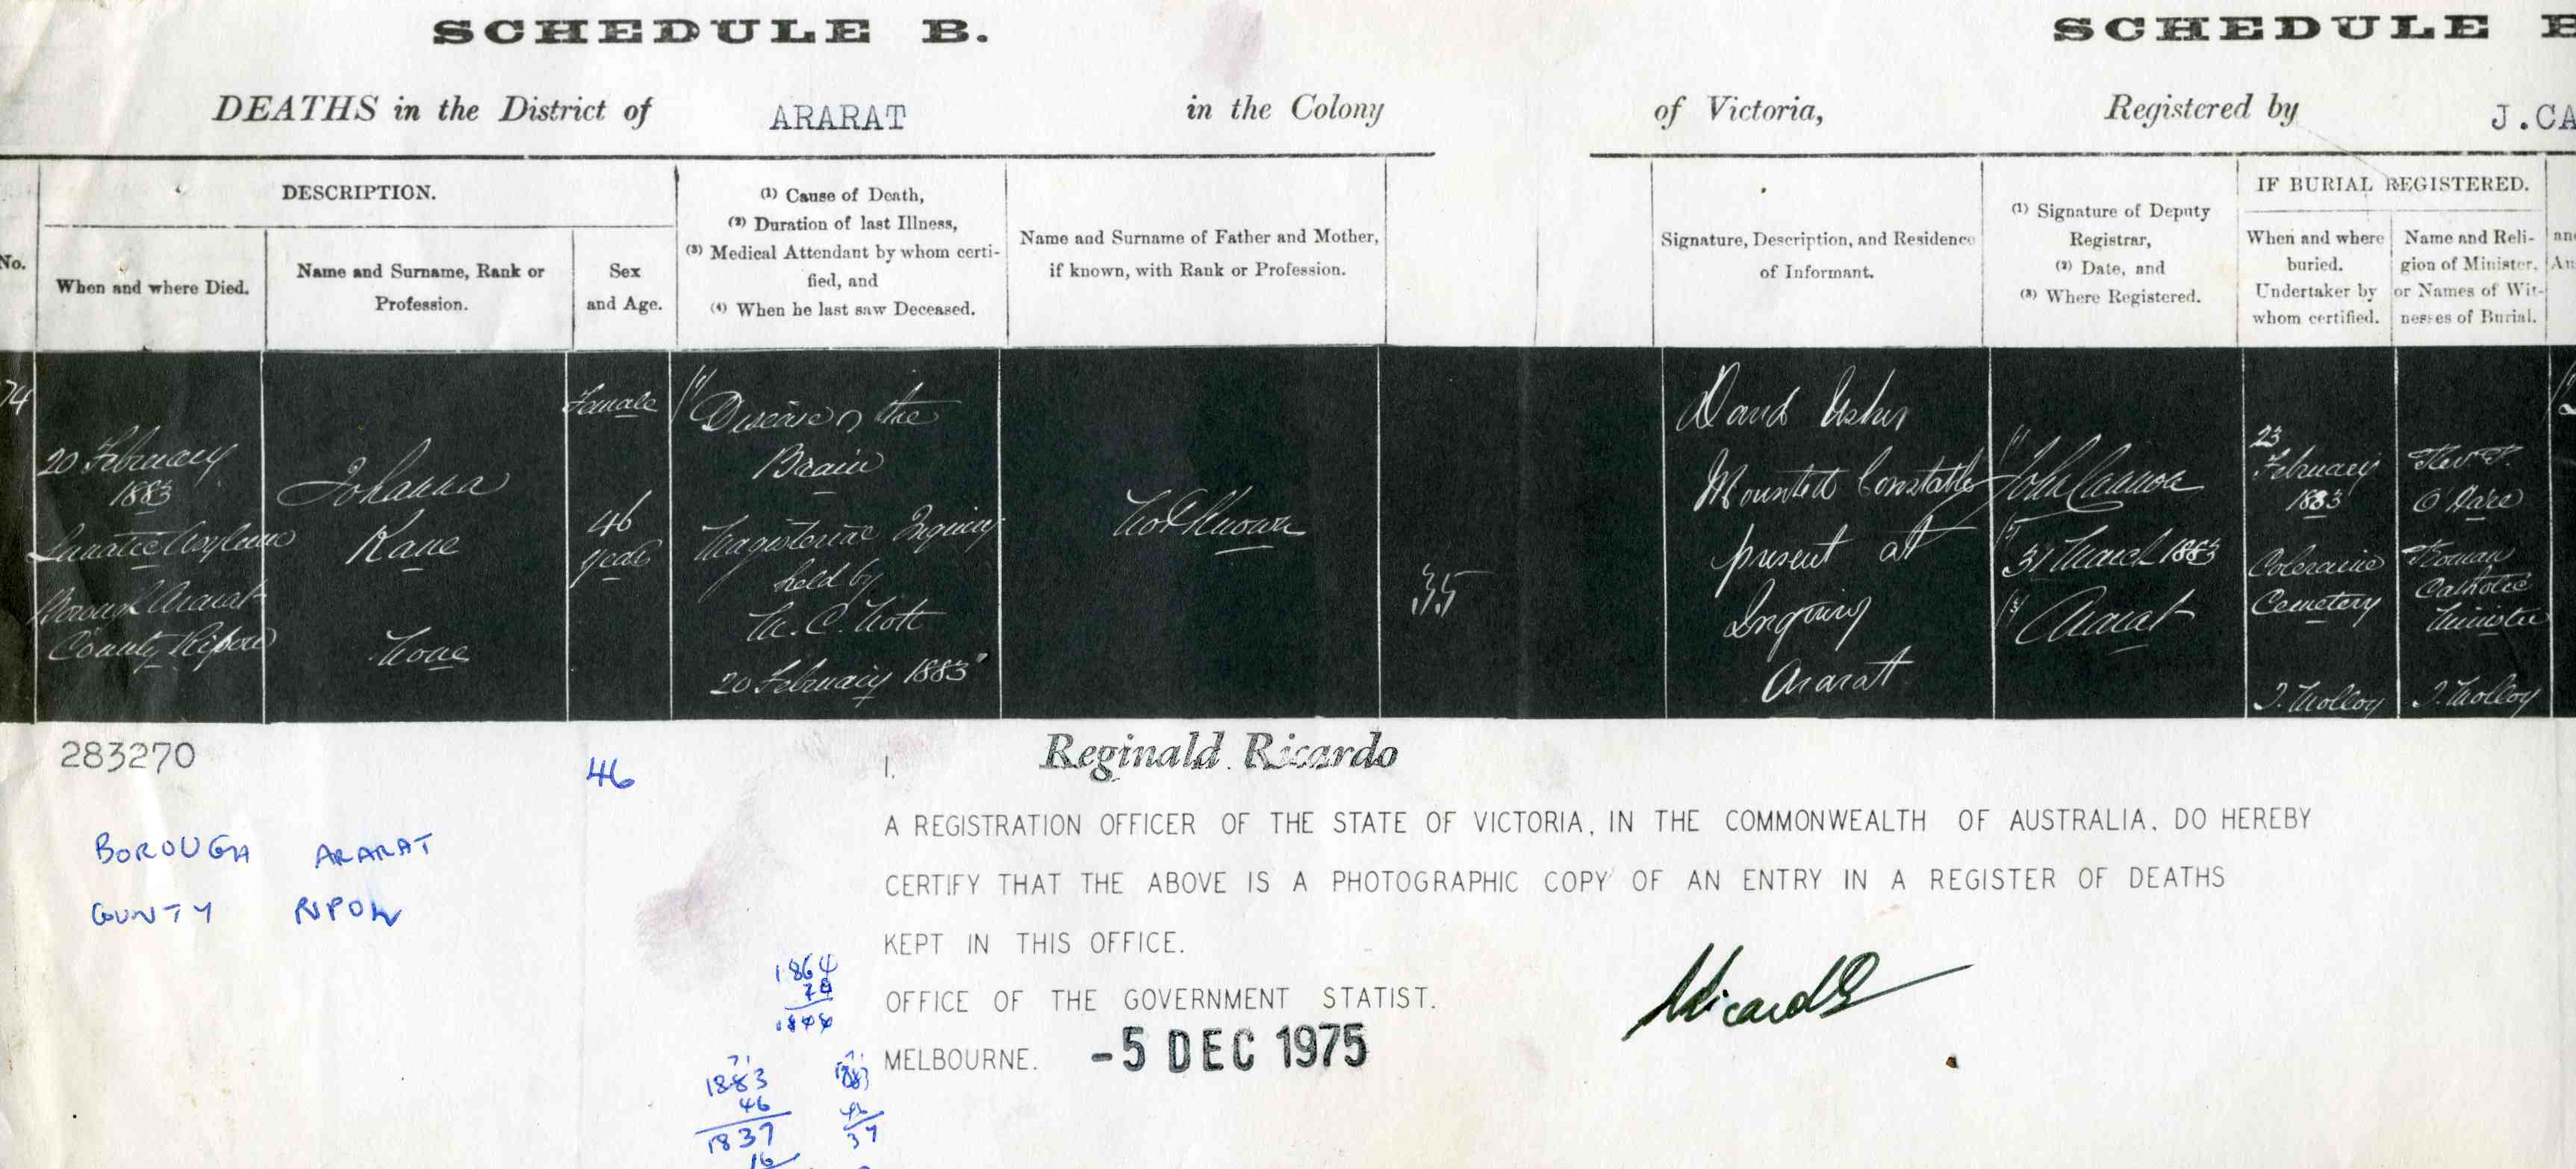 SCHEDULE B.
SCHEDULE
DEATHS in the District of ARARAT in the Colony of Victoria, Registered by J.CA
No.
DESCRIPTION.
When and where Died.
Name and Surname, Rank or
Profession.
Sex
and Age.
(1) Cause of Death,
(2) Duration of last Illness,
(3) Medical Attendant by whom certi-
fied, and
(4) When he last saw Deceased.
Name and Surname of Father and Mother,
if known, with Rank or Profession.
Signature, Description, and Residence
of Informant.
(1) Signature of Deputy
Registrar,
(2) Date, and
(3) Where Registered.
IF BURIAL REGISTERED.
When and where
buried.
Undertaker by
whom certified.
Name and Reli-
gion of Minister,
or Names of Wit-
nesses of Burial.
74
20 February
1883
Lunatic Asylum
Borough Ararat
County Ripon
Johanna
Kane
None
Female
46
years
(1) Disease of the
Brain
Magisterial Inquiry
held by
20 February 1883
Not Known
35
David Usher
Mounted Constable
present at
Inquiry
Ararat
(1) John Cannon
(2) 31 March 1883
(3) Ararat
23
February
1883
Coleraine
Cemetery
J. Molloy
Rev. P.
O'Hare
Roman
Catholic
Minister
J. Molloy
283270
46
BOROUGH ARARAT
COUNTY RIPON
I, Reginald Ricardo
A REGISTRATION OFFICER OF THE STATE OF VICTORIA, IN THE COMMONWEALTH OF AUSTRALIA, DO HEREBY
CERTIFY THAT THE ABOVE IS A PHOTOGRAPHIC COPY OF AN ENTRY IN A REGISTER OF DEATHS
KEPT IN THIS OFFICE.
OFFICE OF THE GOVERNMENT STATIST.
MELBOURNE. -5 DEC 1975
RRicardo
1864
1883
46
1837
16
1883
46
37